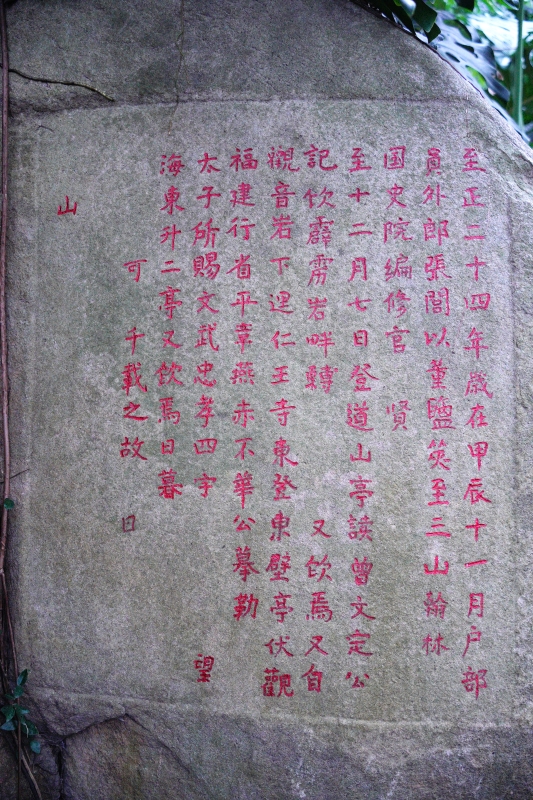 至正二十四年歲在甲辰十一月户部
員外郎張閭以董鹽筴至三山翰林
国史院編修官 贤
至十二月七日登道山亭读曾文定公
記饮霹雳岩畔轉 又饮焉又自
觀音岩下逕仁王寺東登東壁亭伏觀
福建行省平章燕赤不華公摹勒
太子所賜文武忠孝四字 望
海東升二亭又饮焉日暮
可 千载之故 日
山